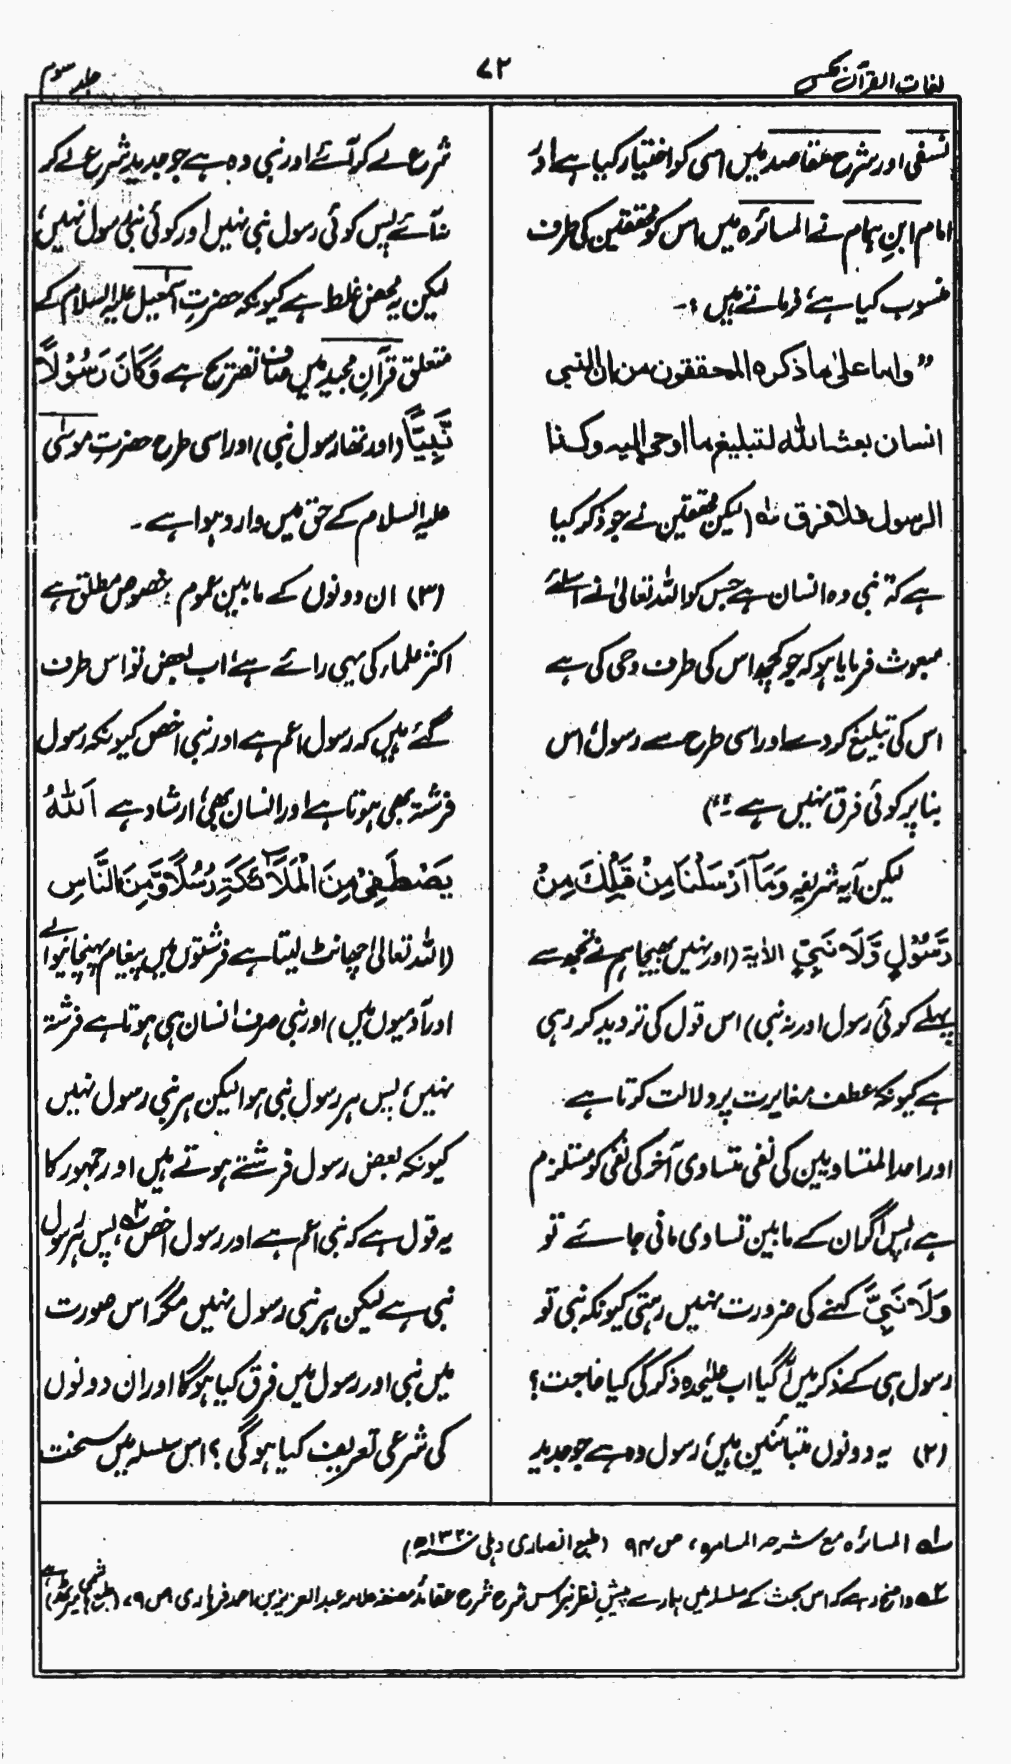 لغات القرآن مکمل
۷۲
جلد سوم
نسفی اور شرح مقاصد میں اسی کو اختیار کیا ہے اور
امام ابنِ ہمام نے المسائرہ میں اس کو محققین کی طرف
منسوب کیا ہے، فرماتے ہیں :۔
”واما علیٰ ما ذکرہ المحققون من ان النبی
انسان بعثہ اللہ لتبلیغ ما اوحی الیہ وکذا
الرسول فلا فرق لہ (لیکن محققین نے جو ذکر کیا
ہے کہ نبی وہ انسان ہے جس کو اللہ تعالیٰ نے اسلئے
مبعوث فرمایا ہو کہ جو کچھ اس کی طرف وحی کی ہے
اس کی تبلیغ کر دے اور اسی طرح سے رسول، اس
بنا پر کوئی فرق نہیں ہے۔“)
لیکن آیہ شریفہ وَمَآ اَرْسَلْنَا مِنْ قَبْلِكَ مِنْ
رَّسُوْلٍ وَّلَا نَبِيٍّ الاٰیۃ (اور نہیں بھیجا ہم نے تجھ سے
پہلے کوئی رسول اور نہ نبی) اس قول کی تردید کر رہی
ہے کیونکہ عطف مغایرت پر دلالت کرتا ہے
اور احد المتساویین کی نفی متساوی آخر کی نفی کو مستلزم
ہے، پس اگر ان کے مابین تساوی مانی جائے تو
وَلَا نَبِيٍّ کہنے کی ضرورت نہیں رہتی کیونکہ نبی تو
رسول ہی کے ذکر میں آ گیا اب علیٰحدہ ذکر کی کیا حاجت؟
(۲) یہ دونوں متبائنین ہیں، رسول وہ ہے جو جدید
شرع لے کر آئے اور نبی وہ ہے جو جدید شرع لے کر
نہ آئے پس کوئی رسول نبی نہیں اور کوئی نبی رسول نہیں،
لیکن یہ محض غلط ہے کیونکہ حضرت اسمٰعیل علیہ السلام کے
متعلق قرآنِ مجید میں صاف تصریح ہے وَكَانَ رَسُوْلًا
نَّبِيًّا (اور تھا رسول نبی) اور اسی طرح حضرت موسٰی
علیہ السلام کے حق میں وارد ہوا ہے۔
(۳) ان دونوں کے مابین عموم خصوص مطلق ہے
اکثر علماء کی یہی رائے ہے، اب بعض تو اس طرف
گئے ہیں کہ رسول اعم ہے اور نبی اخص کیونکہ رسول
فرشتہ بھی ہوتا ہے اور انسان بھی، ارشاد ہے اَللّٰهُ
يَصْطَفِيْ مِنَ الْمَلٰٓئِكَةِ رُسُلًا وَّمِنَ النَّاسِ
(اللہ تعالیٰ چھانٹ لیتا ہے فرشتوں میں پیغام پہنچانیوالے
اور آدمیوں میں) اور نبی صرف انسان ہی ہوتا ہے فرشتہ
نہیں، پس ہر رسول نبی ہوا لیکن ہر نبی رسول نہیں
کیونکہ بعض رسول فرشتے ہوتے ہیں اور جمہور کا
یہ قول ہے کہ نبی اعم ہے اور رسول اخص ۲ہ، پس ہر رسول
نبی ہے لیکن ہر نبی رسول نہیں مگر اس صورت
میں نبی اور رسول میں فرق کیا ہوگا اور ان دونوں
کی شرعی تعریف کیا ہوگی؟ اس سلسلہ میں سخت
۱ہ المسائرہ مع شرحہ المسامرہ، ص ۹۴ (طبع انصاری دہلی سنہ ۱۳۲۰ھ)
۲ہ واضح رہے کہ اس بحث کے سلسلہ میں ہمارے پیشِ نظر نبراس شرح شرح عقائد مصنفہ علامہ عبدالعزیز بن احمد فرہاری ص ۹، (طبع ہاشمی میرٹھ) ہے